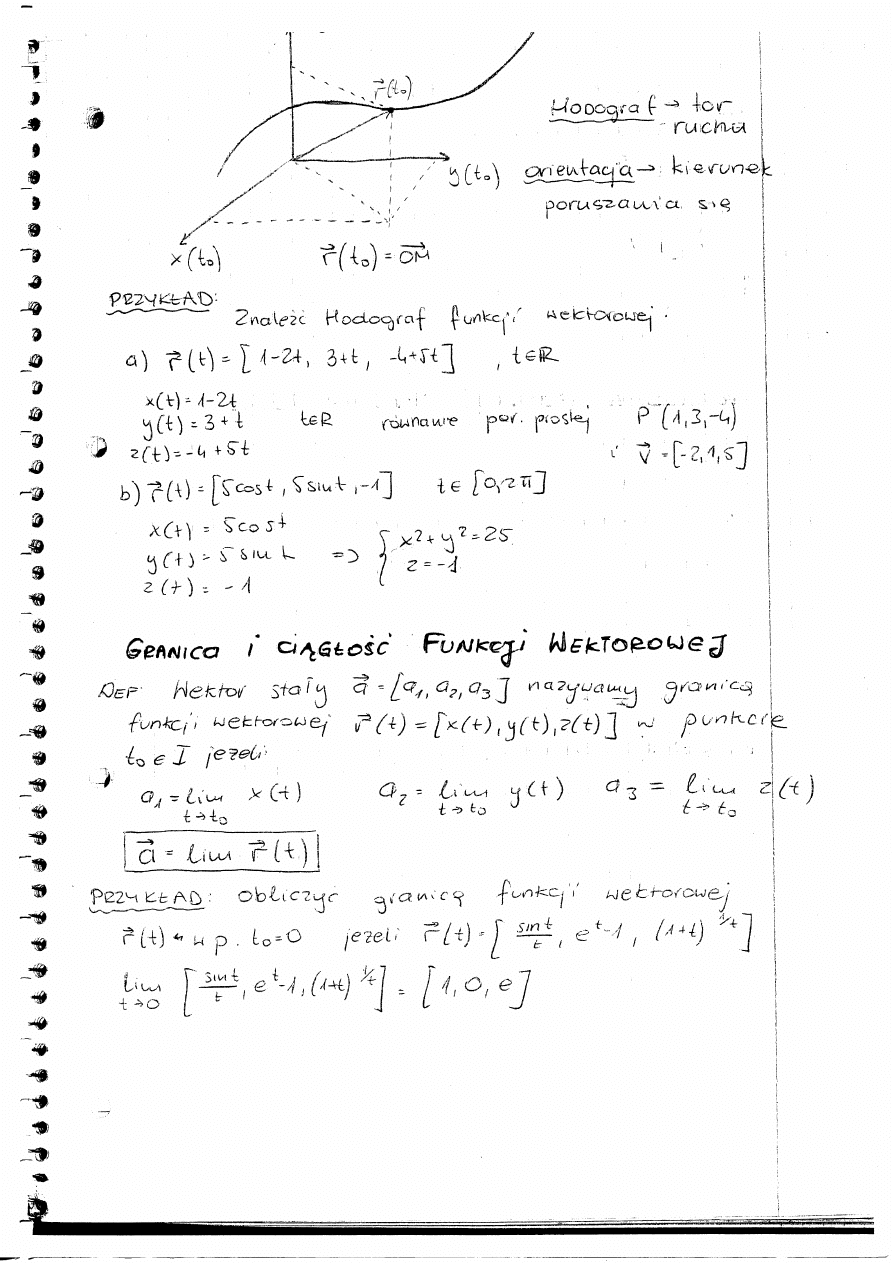 r⃗(t₀)
Hodograf → tor
ruchu
y(t₀) orientacja → kierunek
poruszania się
x(t₀) r⃗(t₀) = O⃗M⃗
PRZYKŁAD:
Znaleźć Hodograf funkcji wektorowej.
a) r⃗(t) = [1-2t, 3+t, -4+5t] , t∈R
x(t) = 1-2t
y(t) = 3+t t∈R równanie par. prostej P(1,3,-4)
z(t) = -4+5t i v⃗ = [-2,1,5]
b) r⃗(t) = [5cost, 5sint, -1] t∈[0,2π]
x(t) = 5cost
y(t) = 5sint => { x²+y²=25
z(t) = -1 z=-1
GRANICA I CIĄGŁOŚĆ FUNKCJI WEKTOROWEJ
DEF: Wektor stały a⃗ = [a₁, a₂, a₃] nazywamy granicą
funkcji wektorowej r⃗(t) = [x(t), y(t), z(t)] w punkcie
t₀ ∈ I jeżeli
a₁ = lim x(t) a₂ = lim y(t) a₃ = lim z(t)
t→t₀ t→t₀ t→t₀
a⃗ = lim r⃗(t)
PRZYKŁAD: Obliczyć granicę funkcji wektorowej
r⃗(t) w p. t₀=0 jeżeli r⃗(t) = [sint/t, e^t-1, (1+t)^1/t]
lim t→0 [sint/t, e^t-1, (1+t)^1/t] = [1, 0, e]